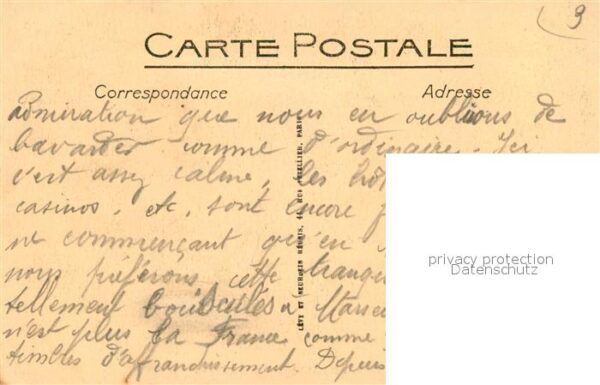 3
CARTE POSTALE
Correspondance
Adresse
admiration que nous en oublions de
bavarder comme d'ordinaire. Ici
c'est assez calme, les hôt
casinos, etc, sont encore f
ne commençant qu'en
nous préférons cette tranqu
tellement bousculés à Marse
n'est plus la France comme
timbres d'affranchissement. Depuis
LÉVY ET NEURDEIN RÉUNIS, 44, RUE LETELLIER, PARIS
privacy protection
Datenschutz